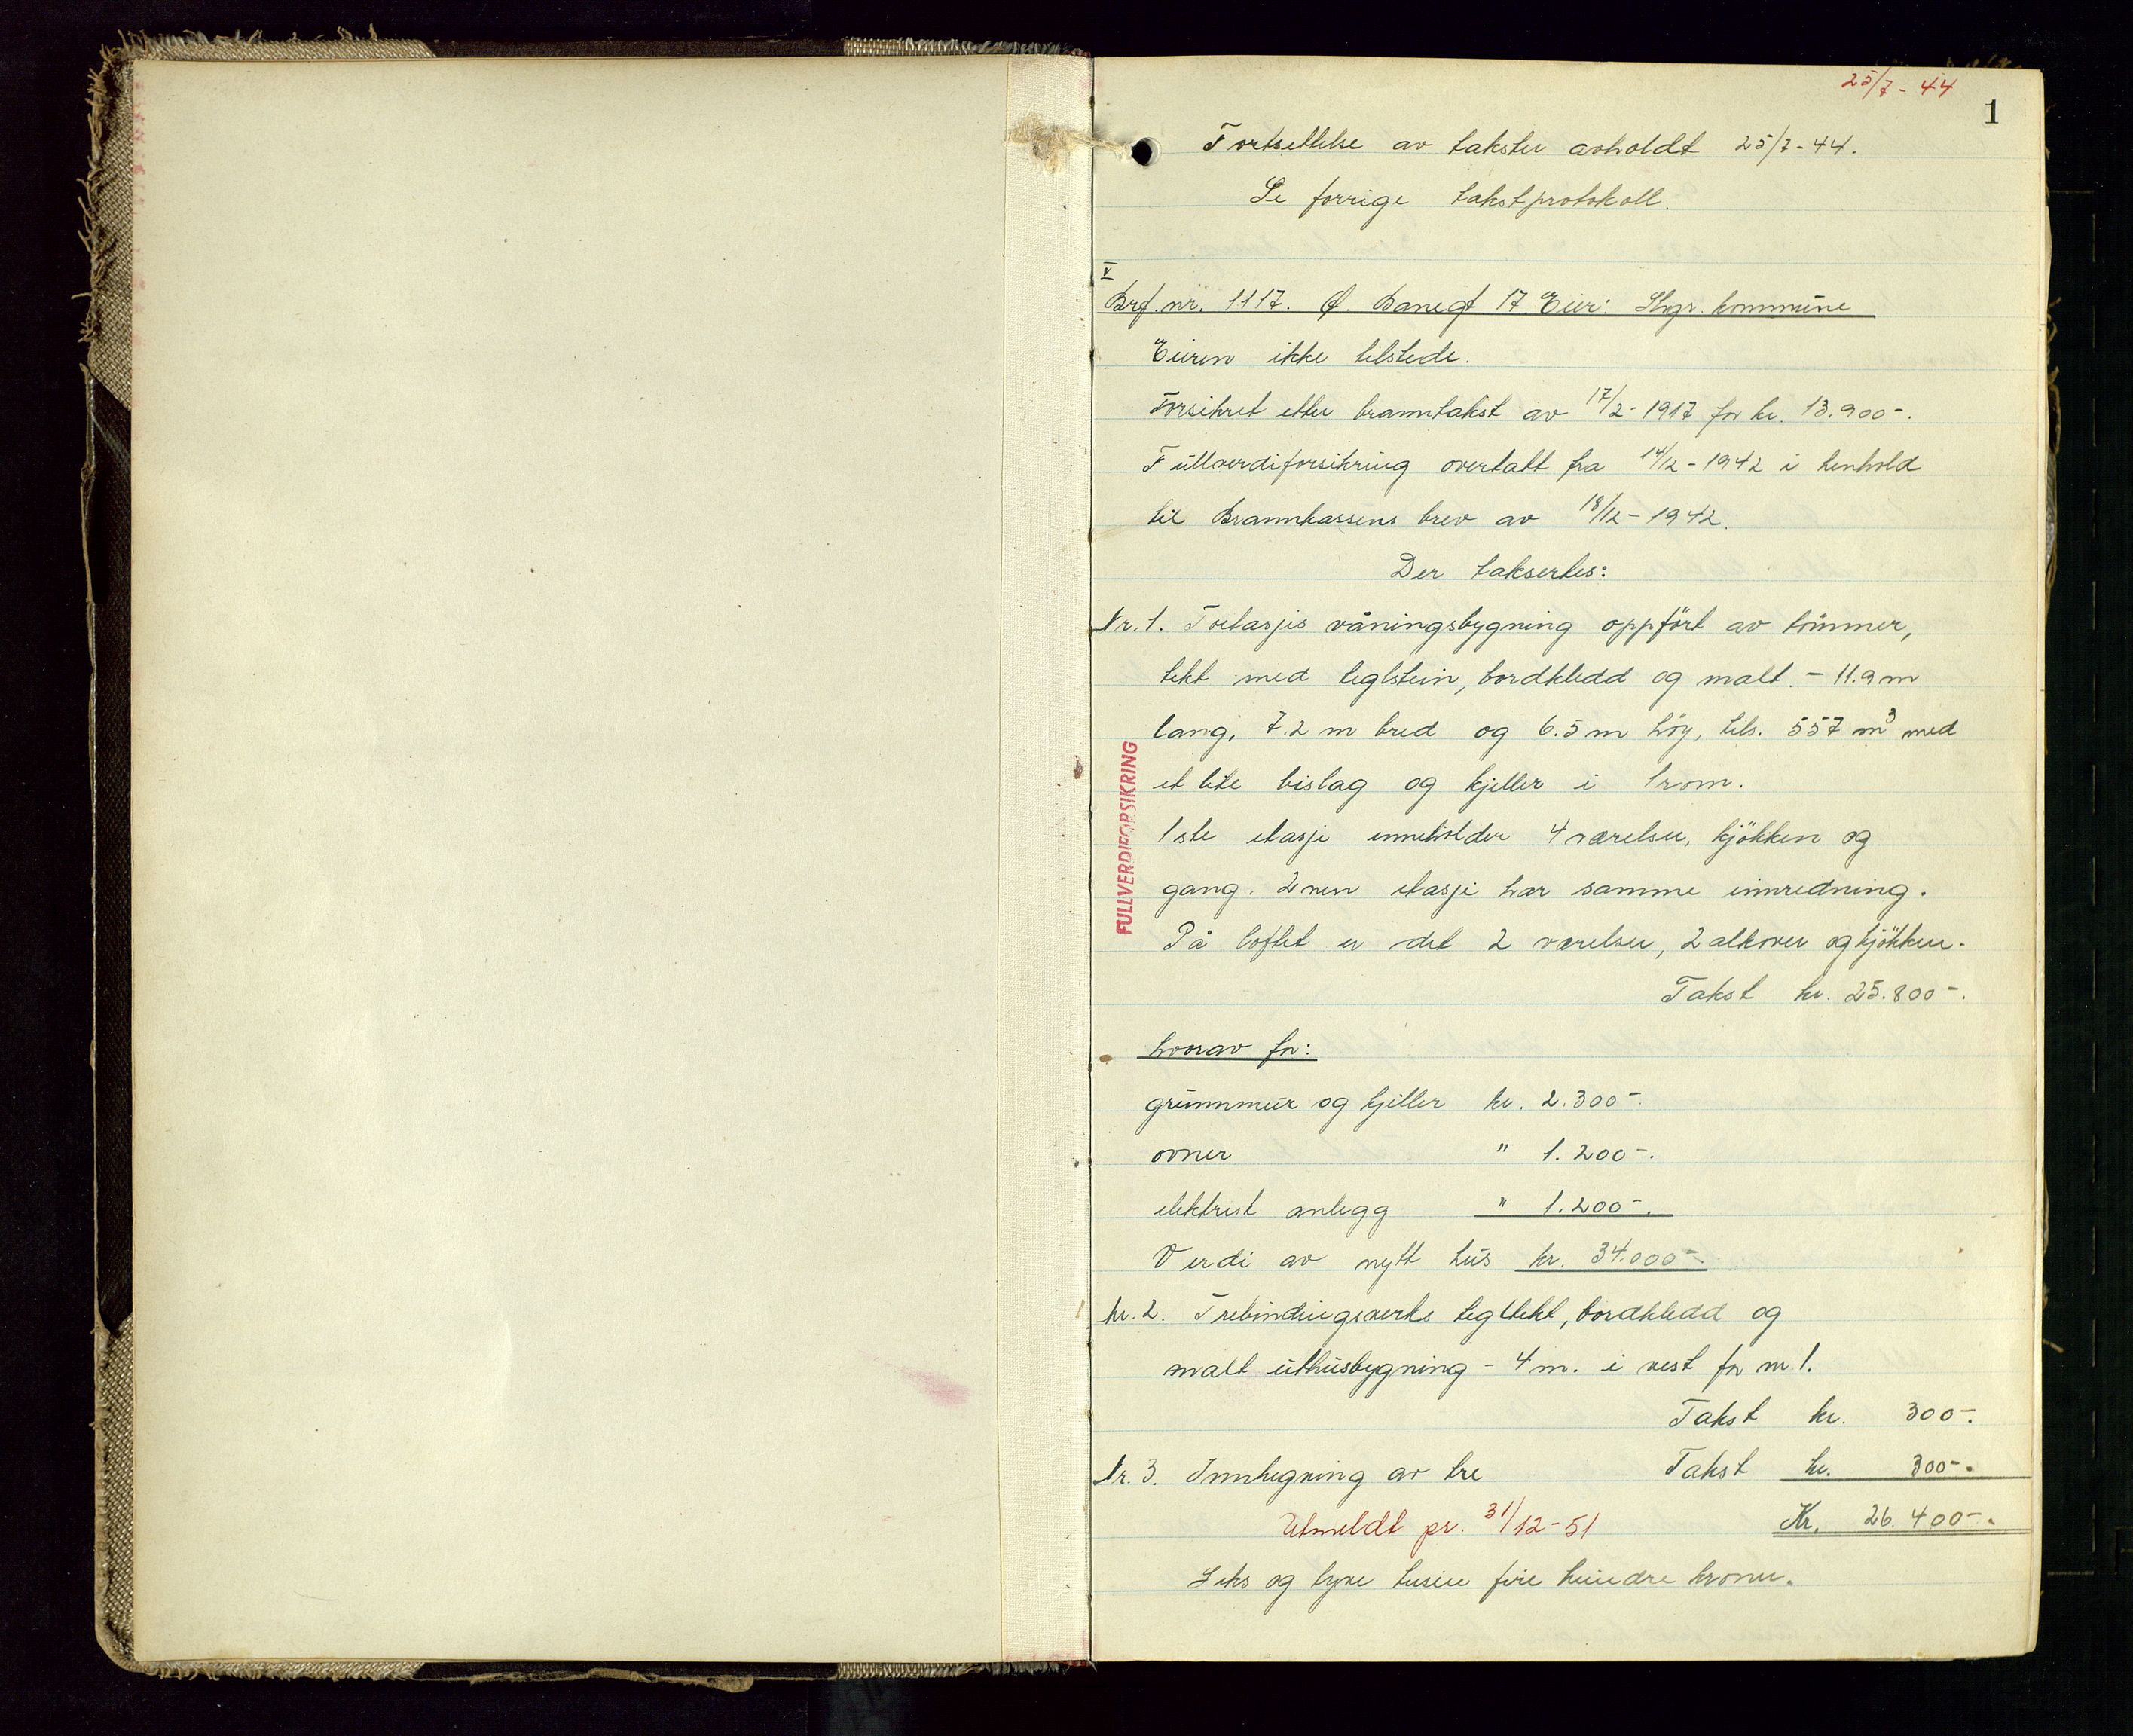 25/7-44
1
Fortsettelse av takster avholdt 25/7-44.
Se forrige takstprotokoll.
V
Brf.nr. 1117. Ø. Banegt 17. Eier: Stvgr. kommune
Eieren ikke tilstede.
Forsikret etter branntakst av 17/2-1917 for kr. 13.900-.
Fullverdiforsikring overtatt fra 14/12-1942 i henhold
til Brannkassens brev av 18/12-1942.
Der taksertes:
Nr. 1. Toetasjes våningsbygning oppført av tømmer,
tekt med teglstein, bordkledd og malt. - 11.9 m
lang, 7.2 m bred og 6.5 m høy, tils. 557 m³ med
et lite bislag og kjeller i 1 rom.
1ste etasje inneholder 4 værelser, kjøkken og
gang. 2nen etasje har samme innredning.
På loftet er det 2 værelser, 2 alkover og kjøkken.
Takst kr. 25.800-.
FULLVERDIFORSIKRING
hvorav for:
grunnmur og kjeller kr. 2.300-.
ovner " 1.200-.
elektrisk anlegg " 1.200-.
Verdi av nytt hus kr. 34.000-
nr. 2. Trebindingsverks tegltekt, bordkledd og
malt uthusbygning - 4 m. i vest for nr 1.
Takst kr. 300-.
Nr. 3. Innhegning av tre Takst kr. 300-.
Utmeldt pr. 31/12-51 Kr. 26.400-.
Seks og tyve tusen fire hundre kroner.